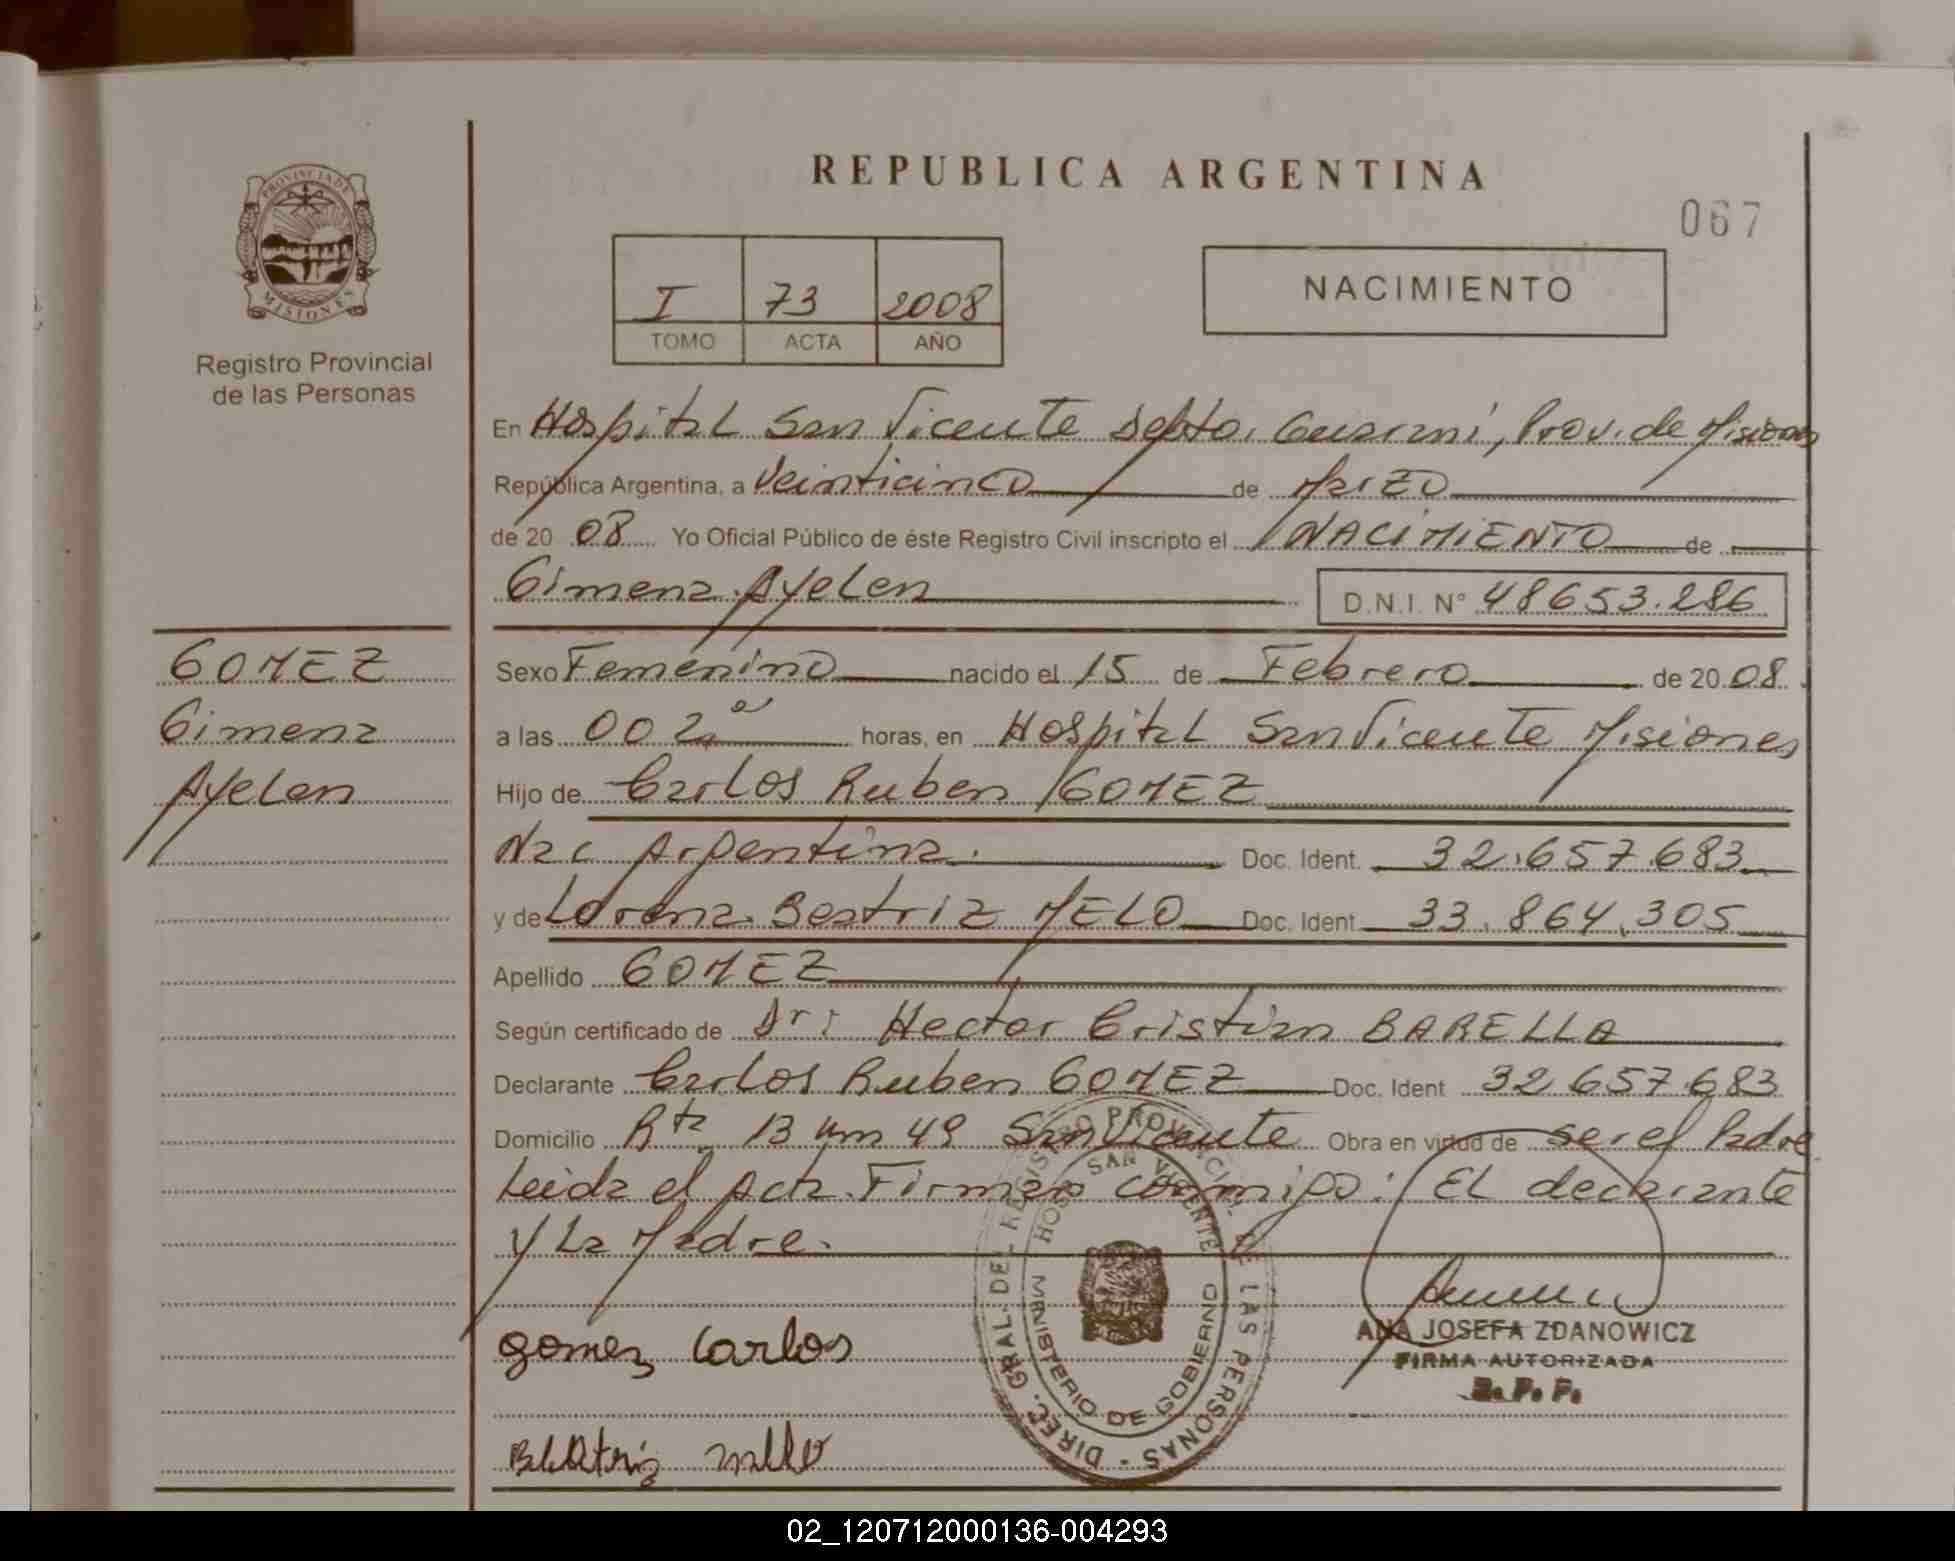 REPUBLICA ARGENTINA
067
PROVINCIA DE
MISIONES
Registro Provincial
de las Personas
I 73 2008
TOMO ACTA AÑO
NACIMIENTO
En Hospital San Vicente Depto. Guarani, Prov. de Misiones
República Argentina, a Veinticinco de Marzo
de 20 08 Yo Oficial Público de éste Registro Civil inscripto el NACIMIENTO de
Gimena Ayelen D.N.I. N° 48653.286
GOMEZ
Gimena
Ayelen
Sexo Femenino nacido el 15 de Febrero de 20 08
a las 00 2 horas, en Hospital San Vicente Misiones
Hijo de Carlos Ruben GOMEZ
Nac Argentina. Doc. Ident. 32.657.683
y de Lorena Beatriz MELO Doc. Ident 33.864.305
Apellido GOMEZ
Según certificado de Dr: Hector Cristian BARELLA
Declarante Carlos Ruben GOMEZ Doc. Ident 32 657.683
Domicilio Rta 13 km 49 San Vicente Obra en virtud de ser el Padre
Leida el Acta. Firman conmigo: El declarante
y La Madre.
gomez Carlos
ANA JOSEFA ZDANOWICZ
FIRMA AUTORIZADA
R. P. P.
DIREC. GRAL. DEL REGISTRO PROVINCIAL DE LAS PERSONAS
HOSP. SAN VICENTE
MINISTERIO DE GOBIERNO
02_120712000136-004293